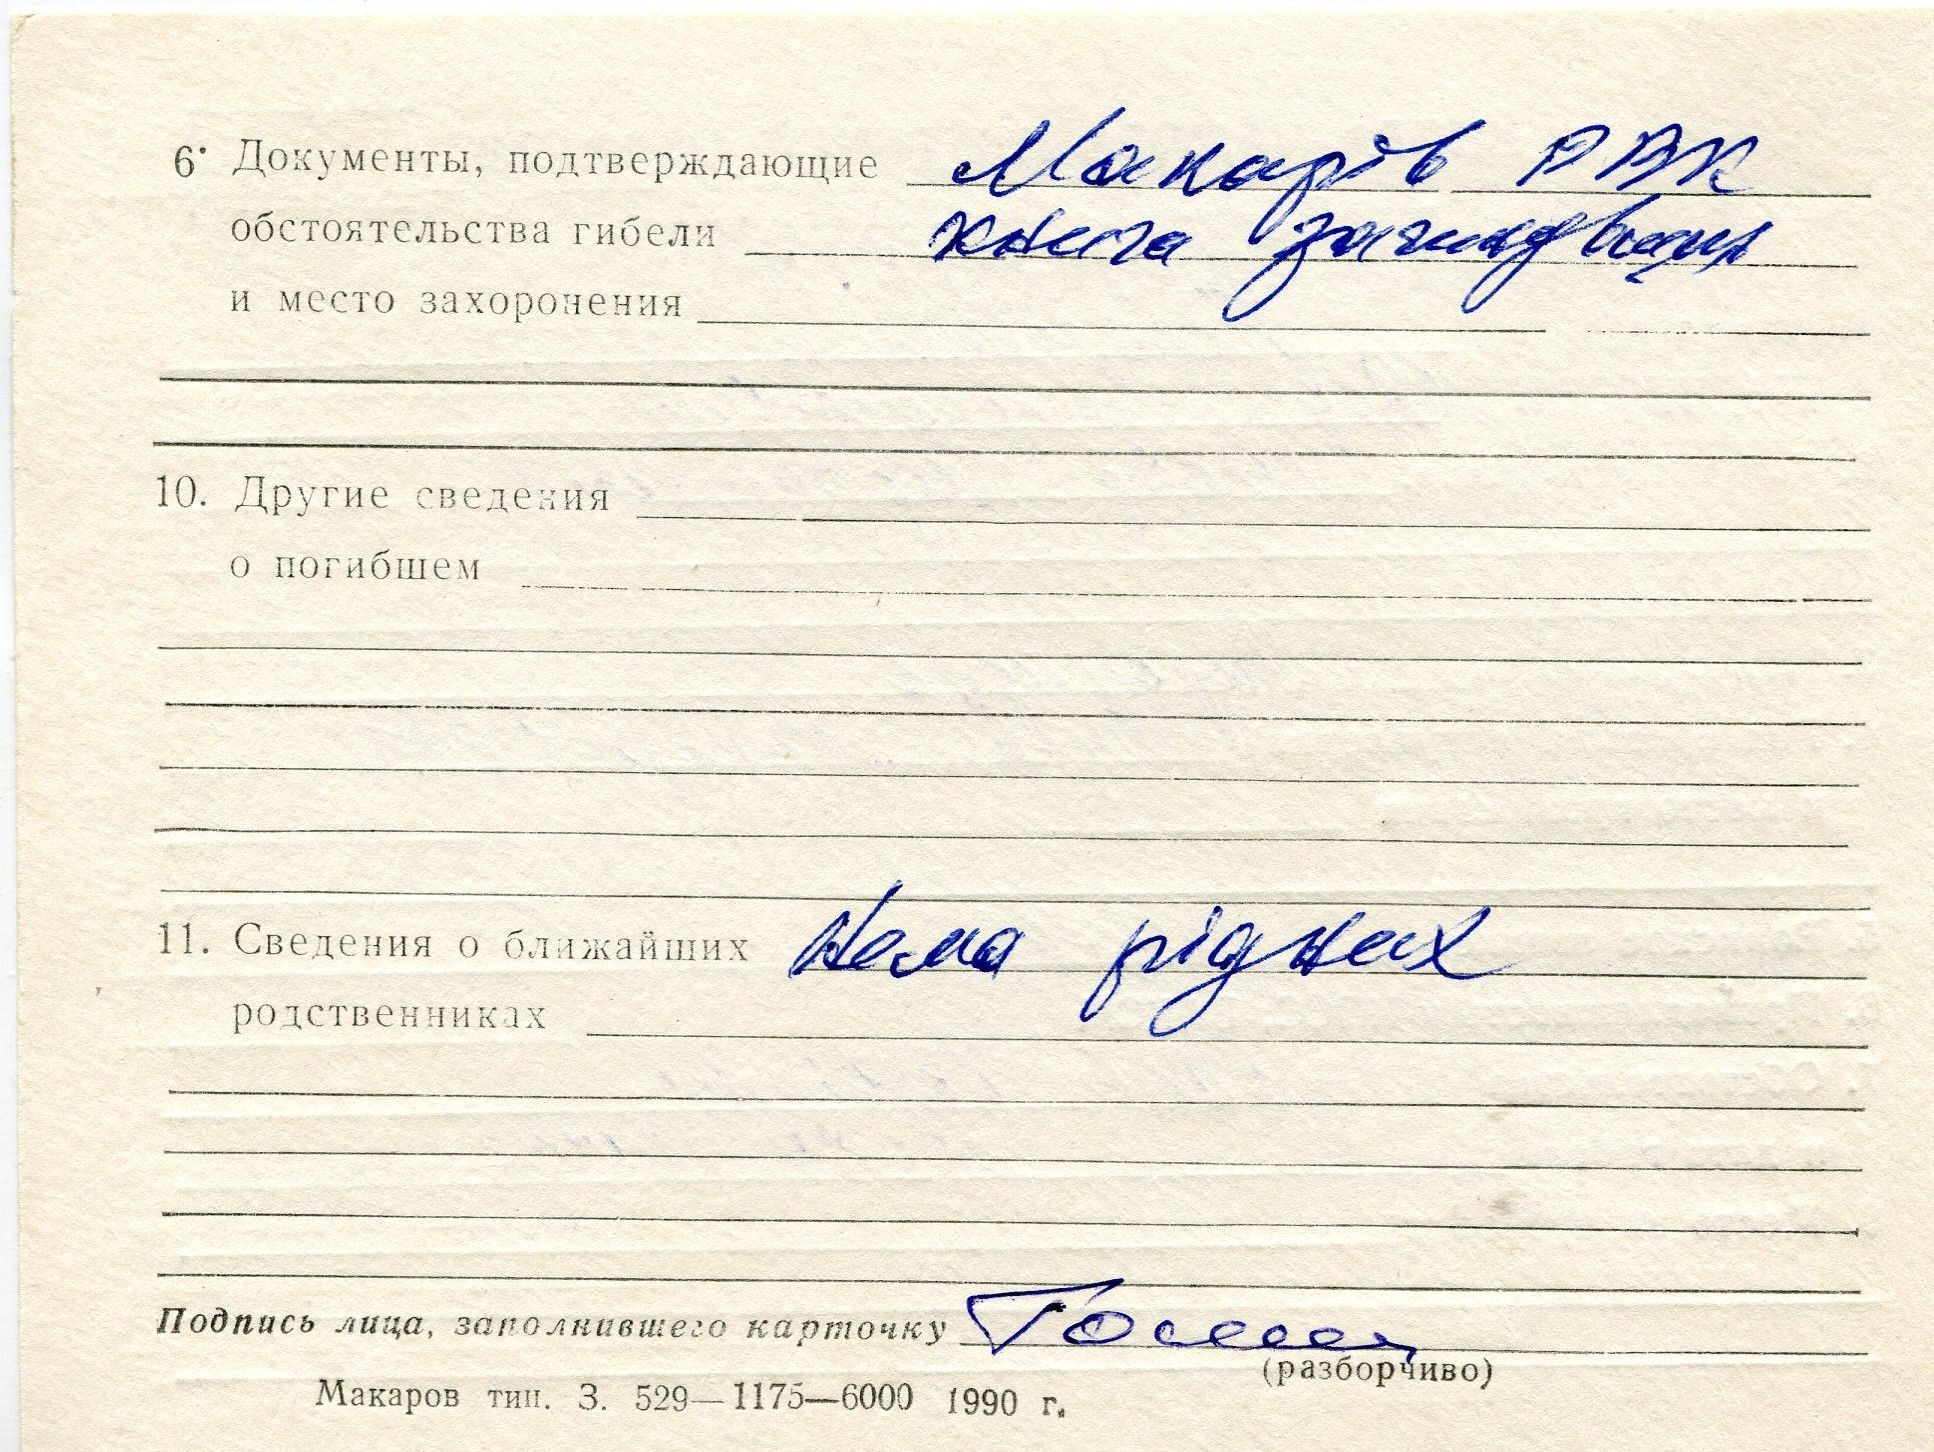 6. Документы, подтверждающие Макарів РВК
обстоятельства гибели книга
и место захоронения
10. Другие сведения
о погибшем
11. Сведения о ближайших Нема рідних
родственниках
Подпись лица, заполнившего карточку
(разборчиво)
Макаров тип. З. 529—1175—6000 1990 г.